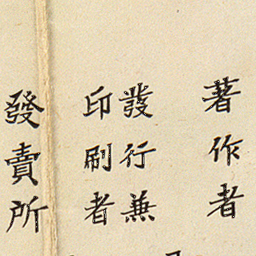 著作者
發行兼
印刷者
發賣所